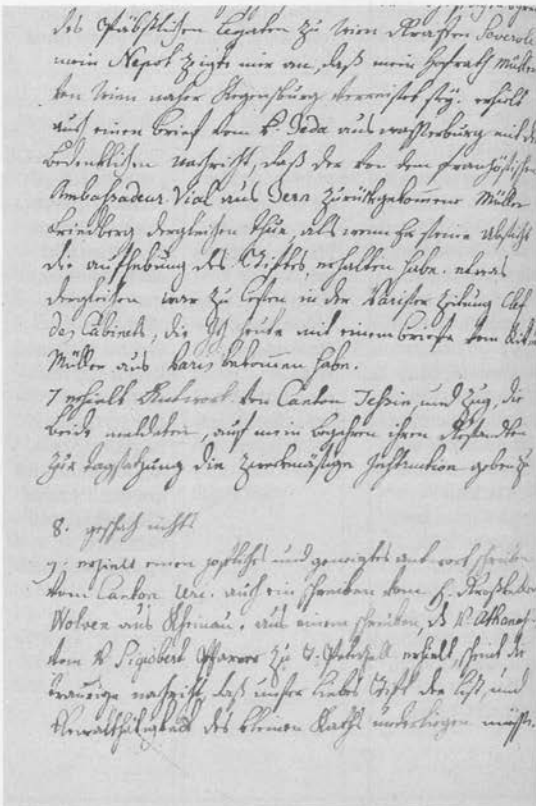 des Päbstlichen Legaten zu Wien Grafen Severoli
mein Nepot zeigte mir an, daß mein Hofrath Müller
von Wien nacher Regensburg verreiset sey. erhielt
auch einen Brief vom P. Beda aus Wasserburg mit der
bedenklichen nachricht, daß der von dem französischen
Ambassadeur Vial aus Bern zurückgekommene Müller
Friedberg dergleichen thue, als wenn Er seine Absicht
die aufhebung des Stiftes, erhalten habe. etwas
dergleichen war zu lesen in der Pariser Zeitung Clef
des Cabinets, die Ich heute mit einem briefe vom
Müller aus Paris bekommen habe.
7 erhielt Antwort von Canton Tessin, und Zug, die
beide meldeten, auf mein begehren ihren Gesandten
zur Tagsatzung die zweckmäsige Instruction geben zu
8. geschah nichts
9. erhielt einen höfliches und geneigtes antwortschreiben
vom Canton Uri. auch ein schreiben vom H. Großkeller
Wolven aus Rheinau. aus einem schreiben, P. Athanas
vom P Sigisbert Pfarrer zu S. Peterzell erhielt, scheint die
traurige nachricht, daß unser liebes Stift der List, und
Gewalthätigkeit des kleinen Raths unterliegen müsse.